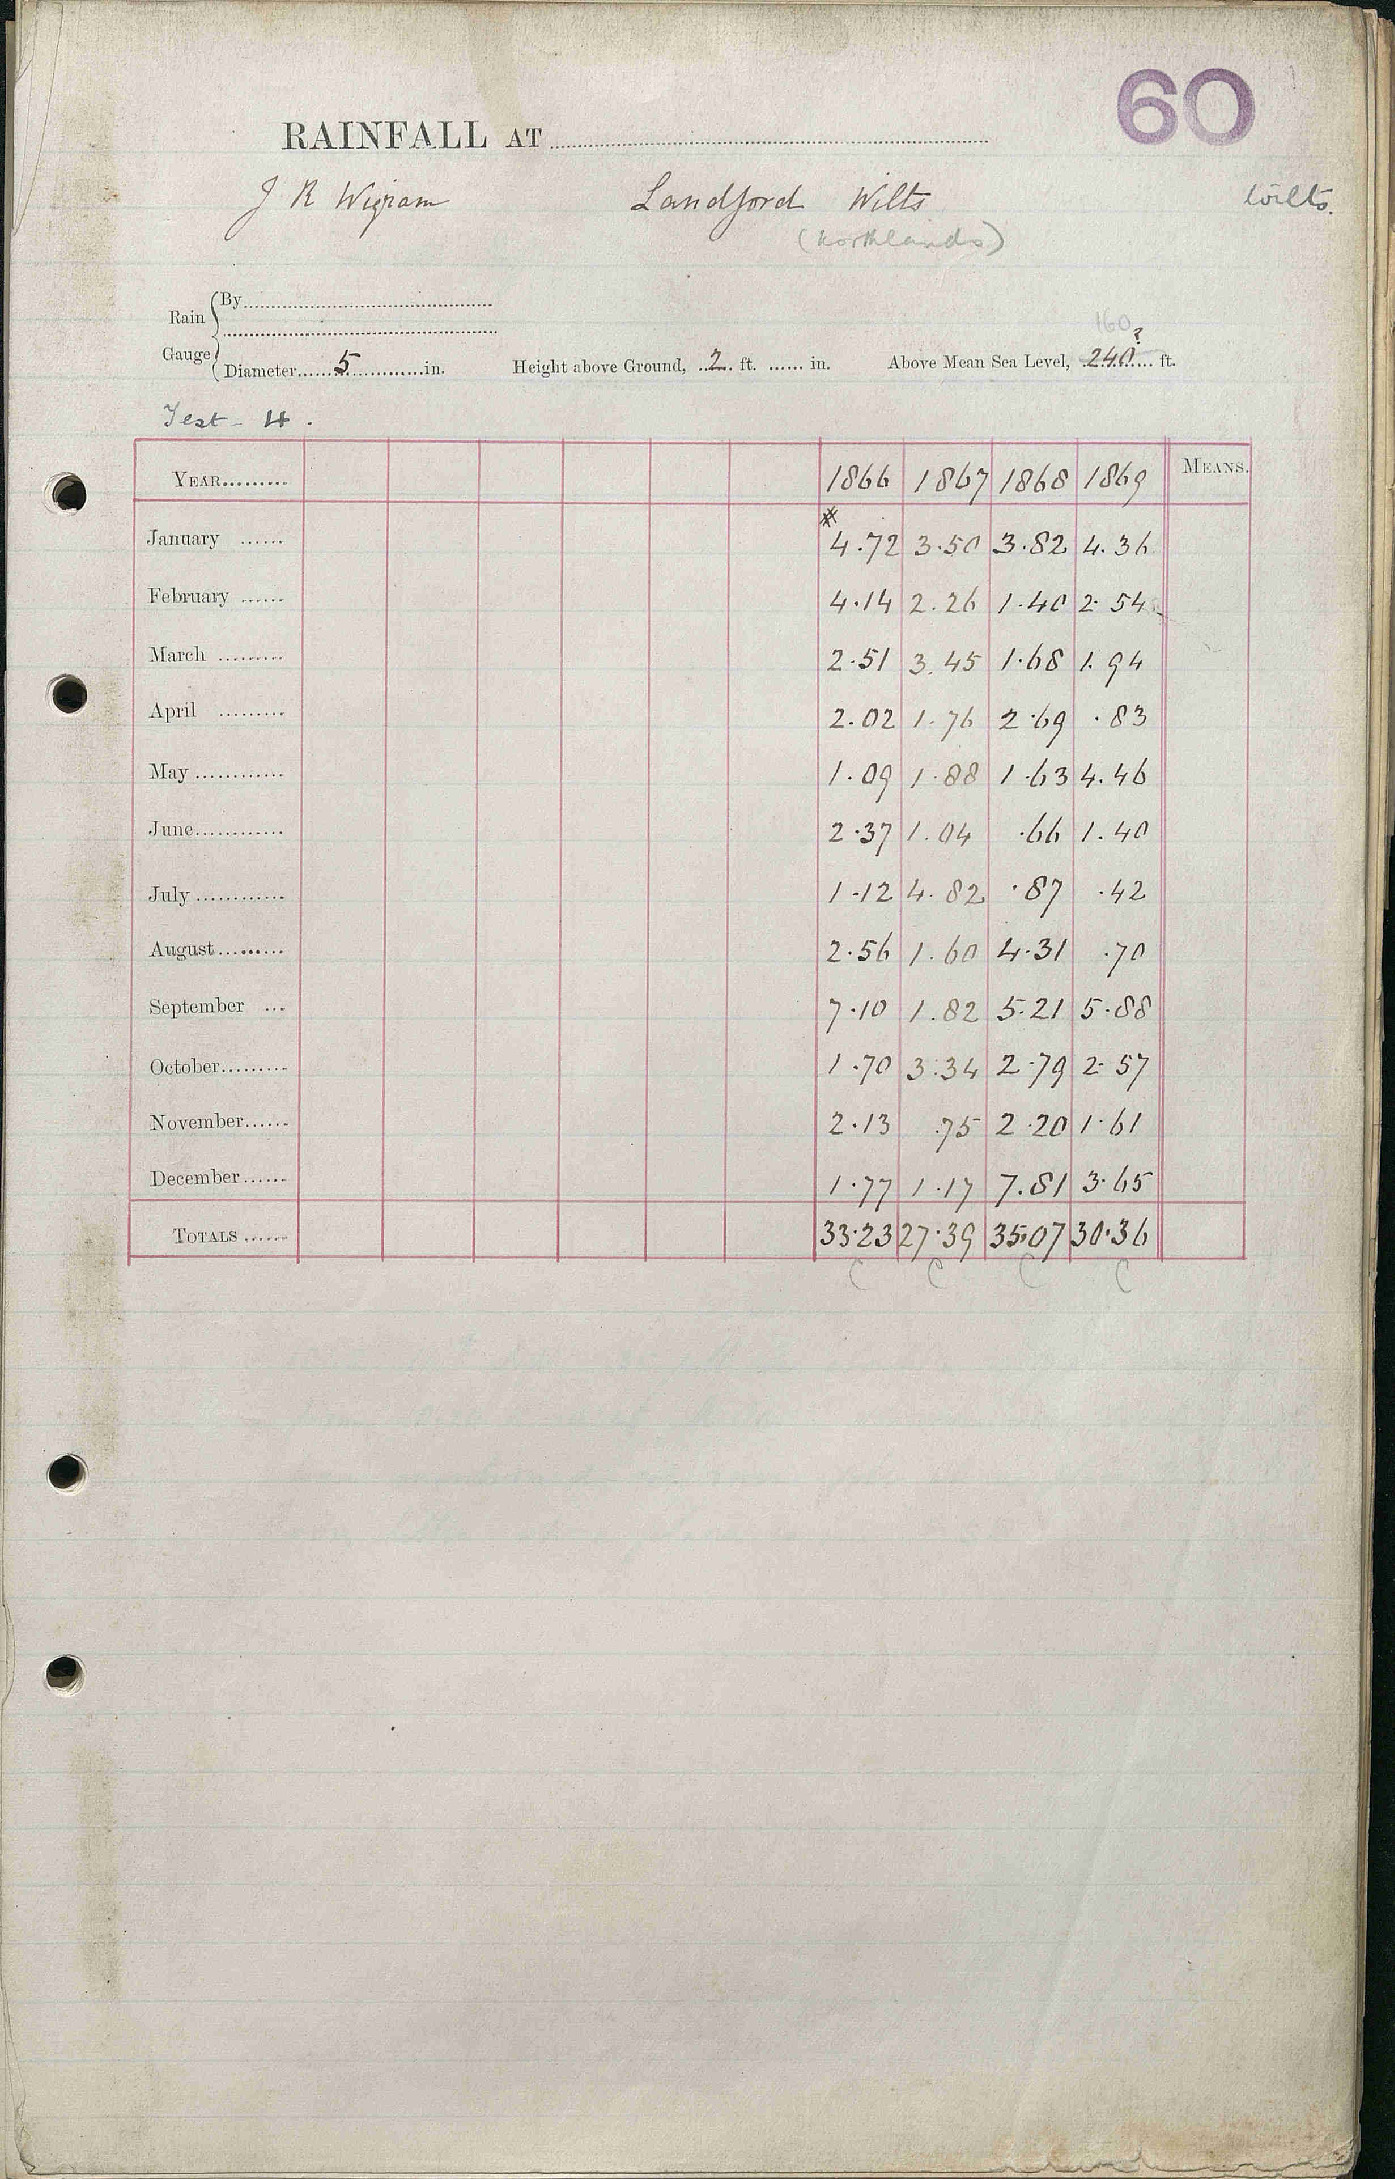 60
RAINFALL AT
J R Wigram Landford Wilts Wilts.
(Northlands)
Rain Gauge { By
160
Diameter 5 in. Height above Ground, 2 ft. in. Above Mean Sea Level, 240? ft.
Test - 4.
YEAR 1866 1867 1868 1869 MEANS.
#
January 4.72 3.50 3.82 4.36
February 4.14 2.26 1.40 2.54
March 2.51 3.45 1.68 1.94
April 2.02 1.76 2.69 .83
May 1.09 1.88 1.63 4.46
June 2.37 1.04 .66 1.40
July 1.12 4.82 .87 .42
August 2.56 1.60 4.31 .70
September 7.10 1.82 5.21 5.88
October 1.70 3.34 2.79 2.57
November 2.13 .75 2.20 1.61
December 1.77 1.17 7.81 3.65
TOTALS 33.23 27.39 35.07 30.36
C C C C